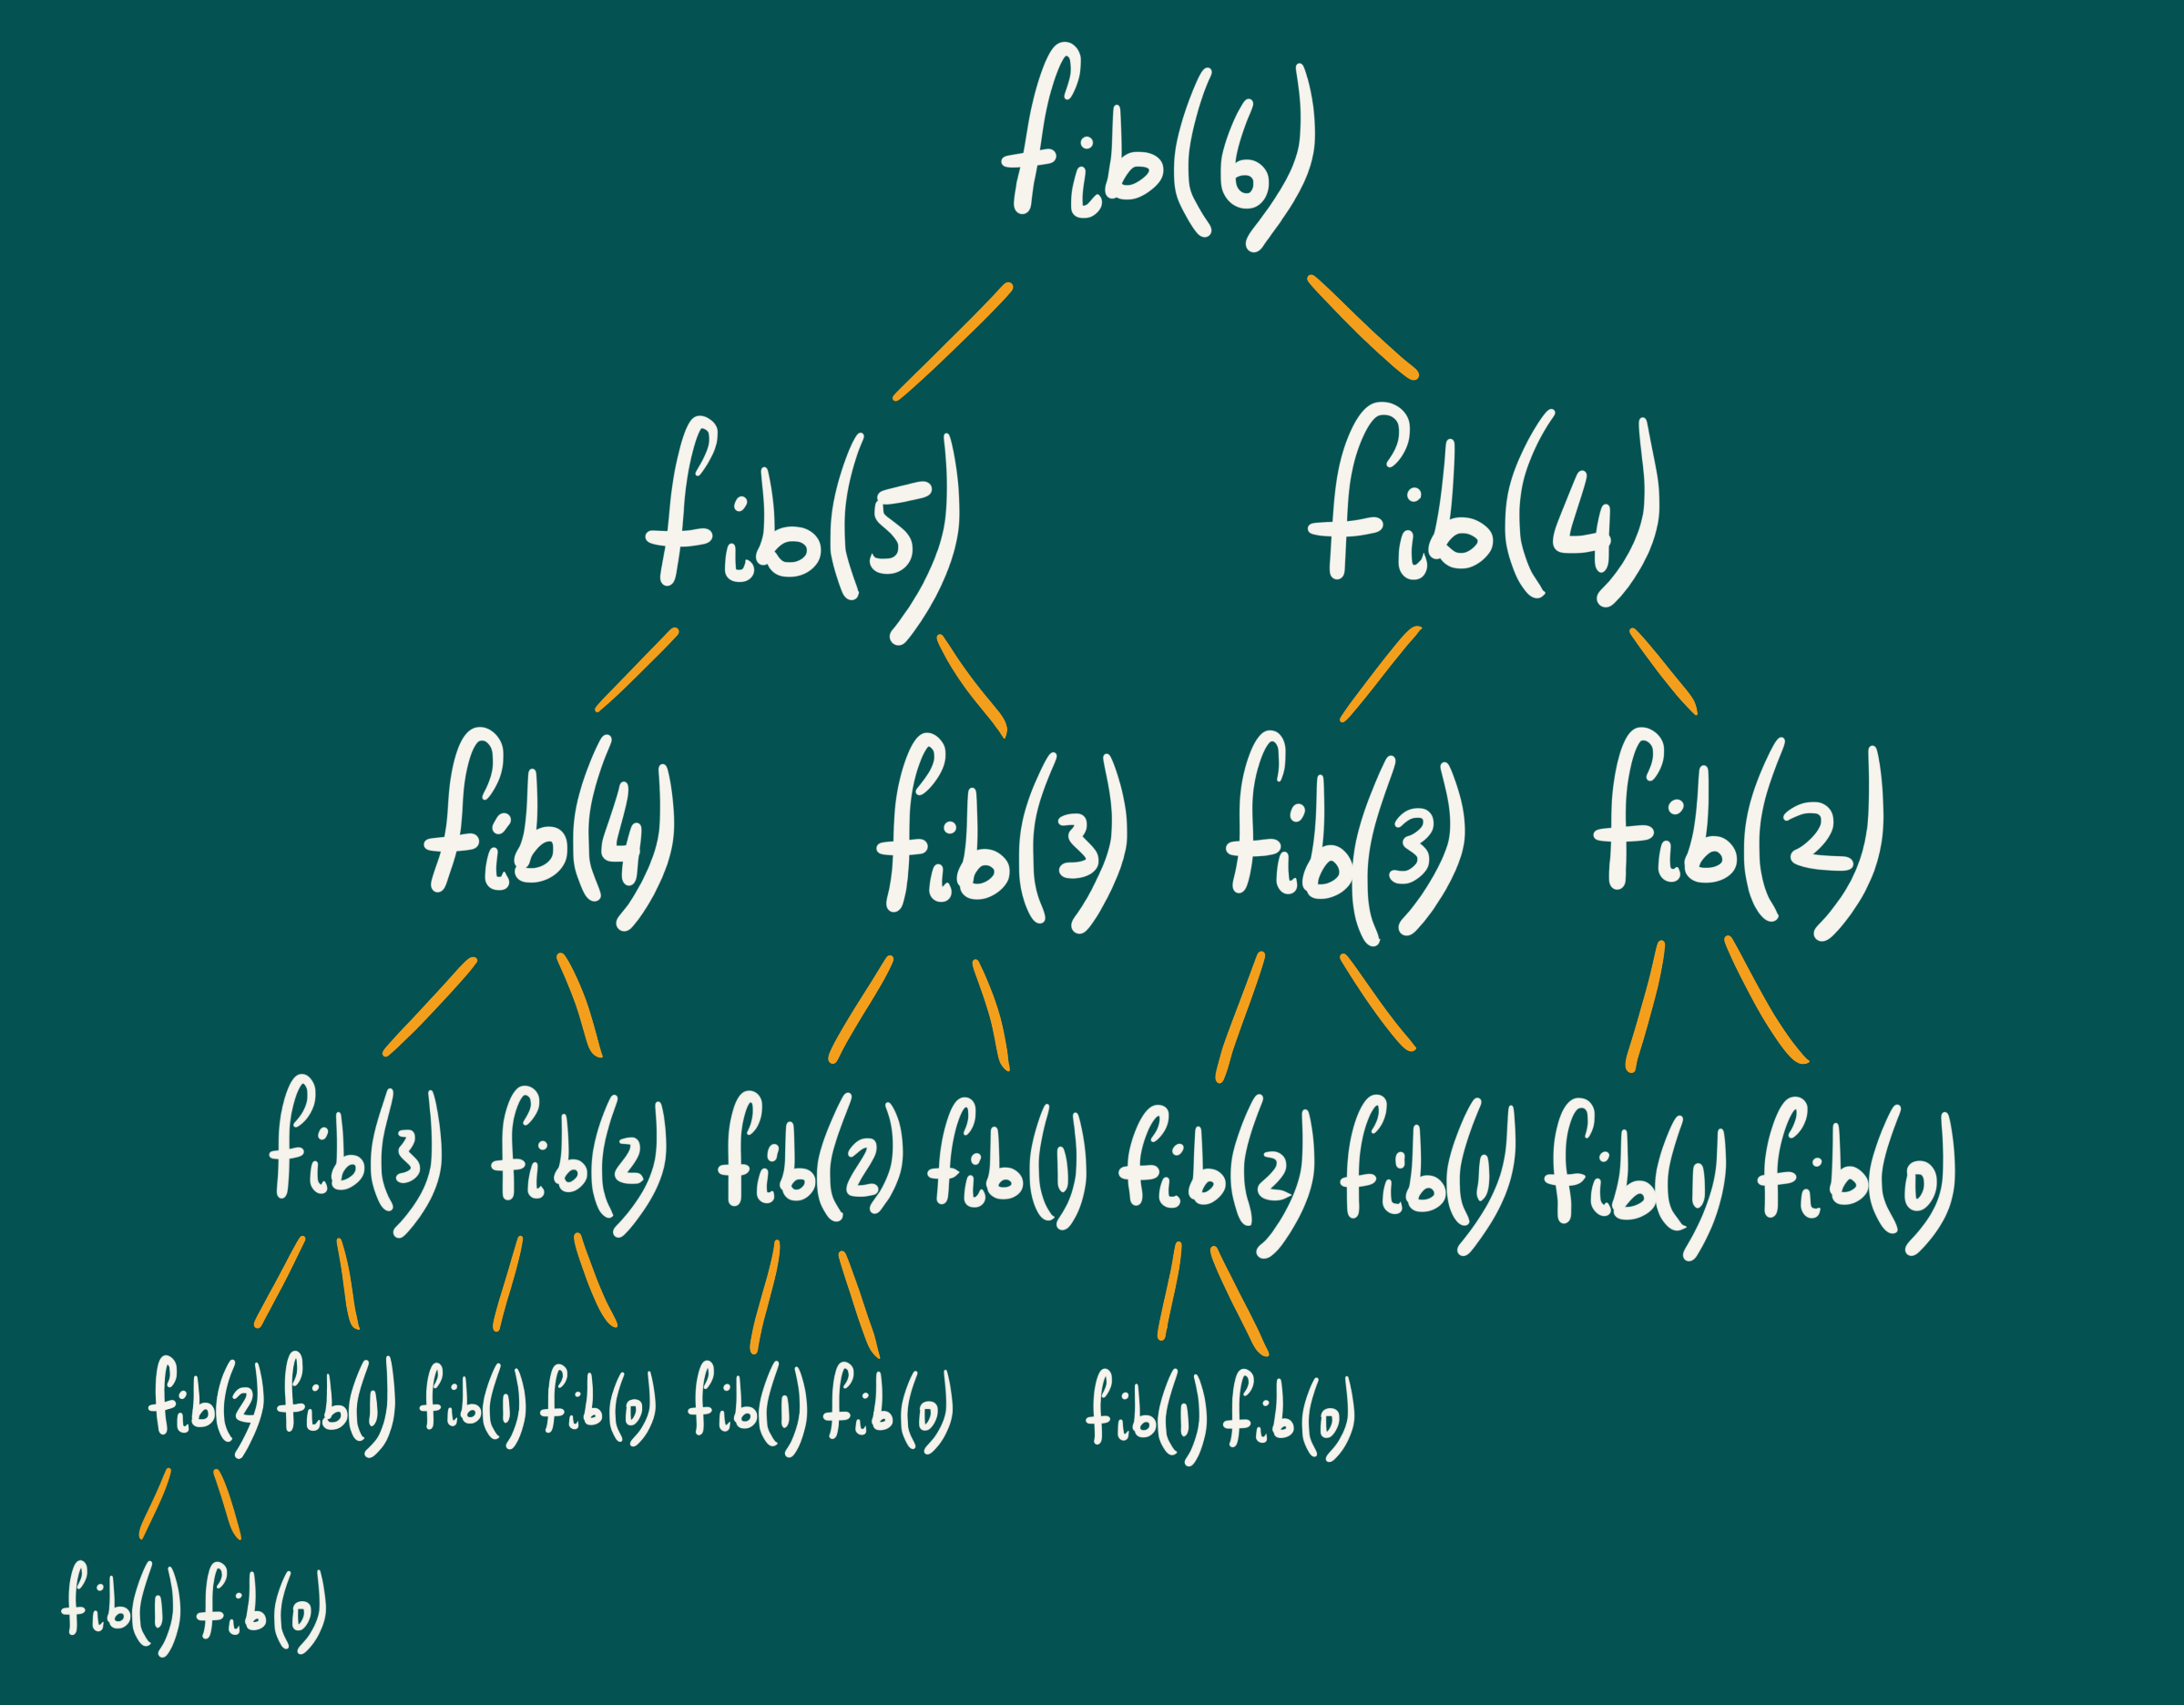 fib(6)
fib(5) fib(4)
fib(4) fib(3) fib(3) fib(2)
fib(3) fib(2) fib(2) fib(1) fib(2) fib(1) fib(1) fib(0)
fib(2) fib(1) fib(1) fib(0) fib(1) fib(0) fib(1) fib(0)
fib(1) fib(0)